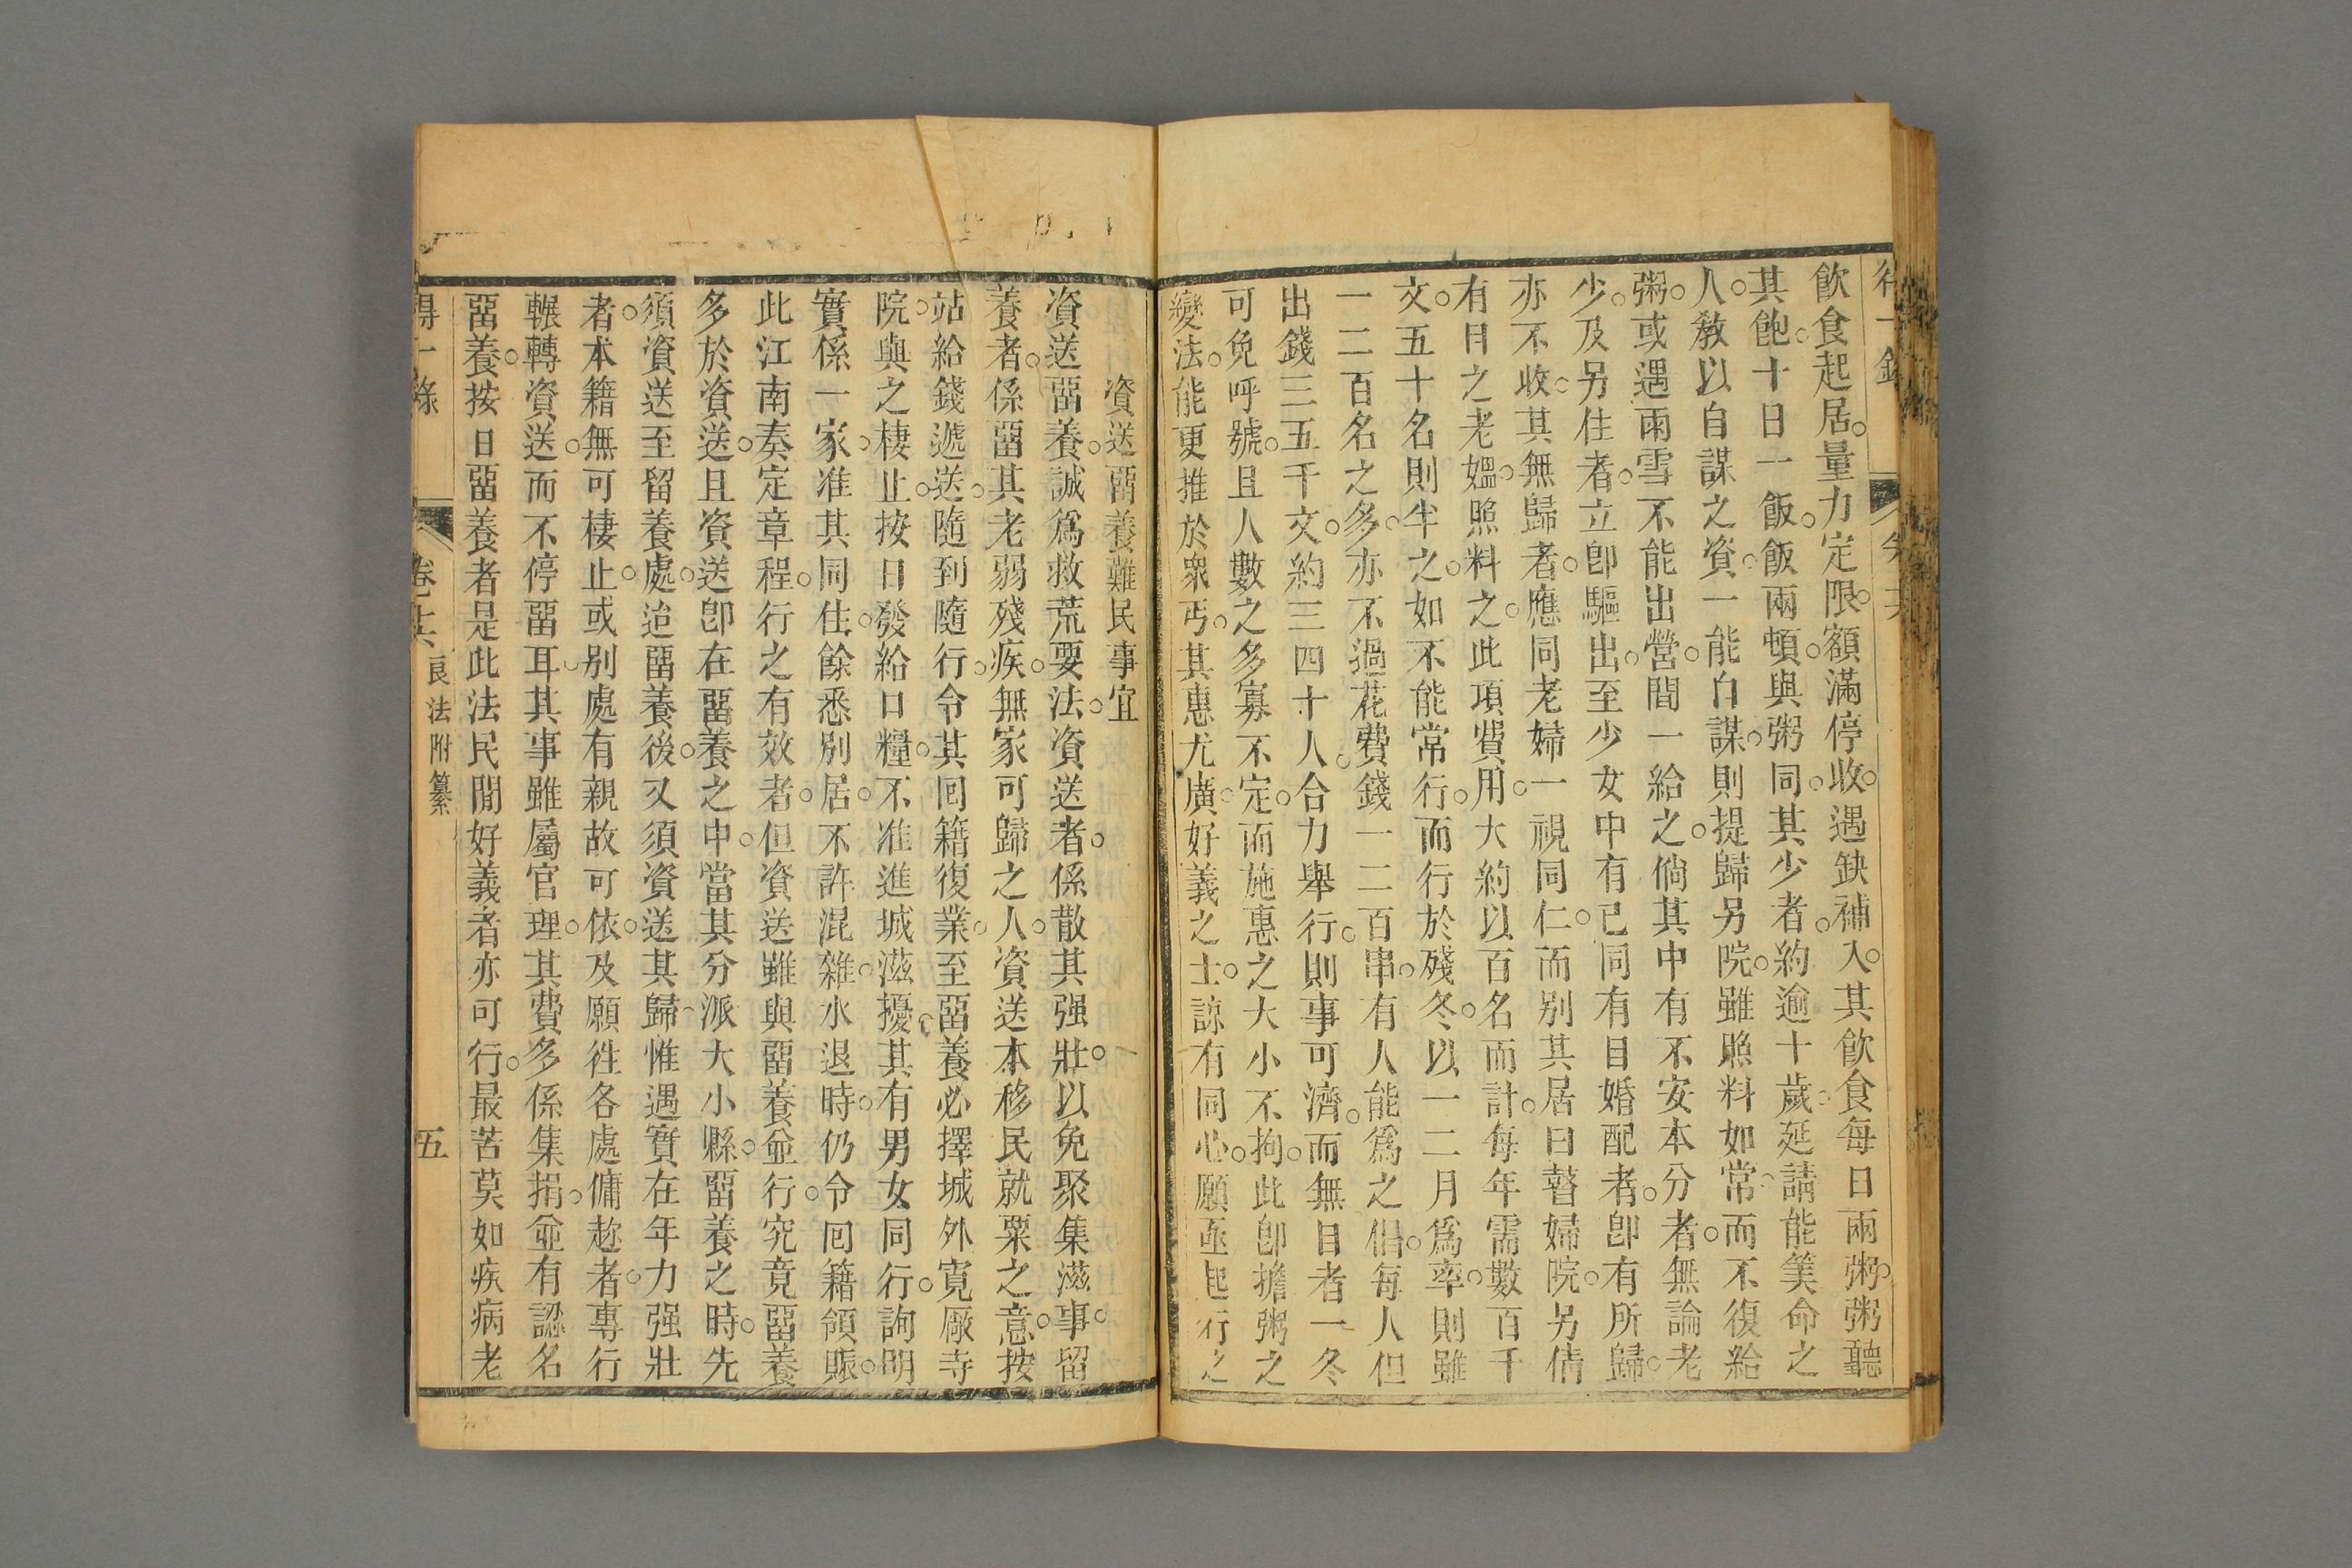 飲食起居。量力定限。額滿停收。遇缺補入。其飲食每日兩粥。粥聽
其飽。十日一飯。飯兩頓。與粥同。其少者。約逾十歲。延請能筭命之
人。教以自謀之資。一能自謀。則提歸另院。雖照料如常。而不復給
粥。或遇雨雪不能出營。間一給之。倘其中有不安本分者。無論老
少。及另住者。立卽驅出。至少女中有已同有目婚配者。卽有所歸。
亦不收。其無歸者。應同老婦一視同仁。而别其居曰瞽婦院。另倩
有目之老媼。照料之。此項費用。大約以百名而計。每年需數百千
文。五十名則半之。如不能常行。而行於殘冬。以一二月爲率。則雖
一二百名之多。亦不過花費錢一二百串。有人能爲之倡。每人但
出錢三五千文。約三四十人。合力舉行。則事可濟。而無目者一冬
可免呼號。且人數之多寡不定。而施惠之大小不拘。此卽擔粥之
變法。能更推於衆丐。其惠尤廣。好義之士。諒有同心。願亟起行之
資送畱養難民事宜
資送畱養。誠爲救荒要法。資送者。係散其强壯。以免聚集滋事。留
養者。係畱其老弱殘疾。無家可歸之人。資送本移民就粟之意。按
站給錢遞送。隨到隨行。令其囘籍復業。至畱養必擇城外寛厰寺
院。與之棲止。按日發給口糧。不准進城滋擾。其有男女同行。詢明
實係一家。准其同住。餘悉别居。不許混雜。水退時。仍令囘籍領賑。
此江南奏定章程。行之有效者。但資送雖與畱養並行。究竟畱養
多於資送。且資送卽在畱養之中。當其分派大小縣。畱養之時。先
須資送至留養處。迨畱養後。又須資送其歸。惟遇實在年力强壯
者。本籍無可棲止。或别處有親故可依。及願徃各處傭趁者。專行
輾轉資送。而不停畱耳。其事雖屬官理。其費多係集捐。並有認名
畱養。按日畱養者是此法民間好義者亦可行。最苦莫如疾病老
得一錄 卷十六 良法附纂 五